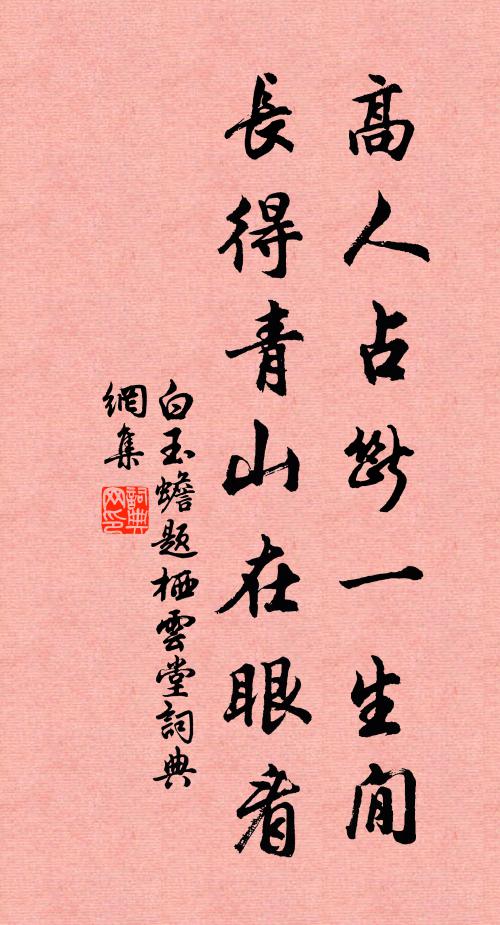 高人占斷一生閒
長得青山在眼看
白玉蟾題栖雲堂詞典
網集
詞典網印